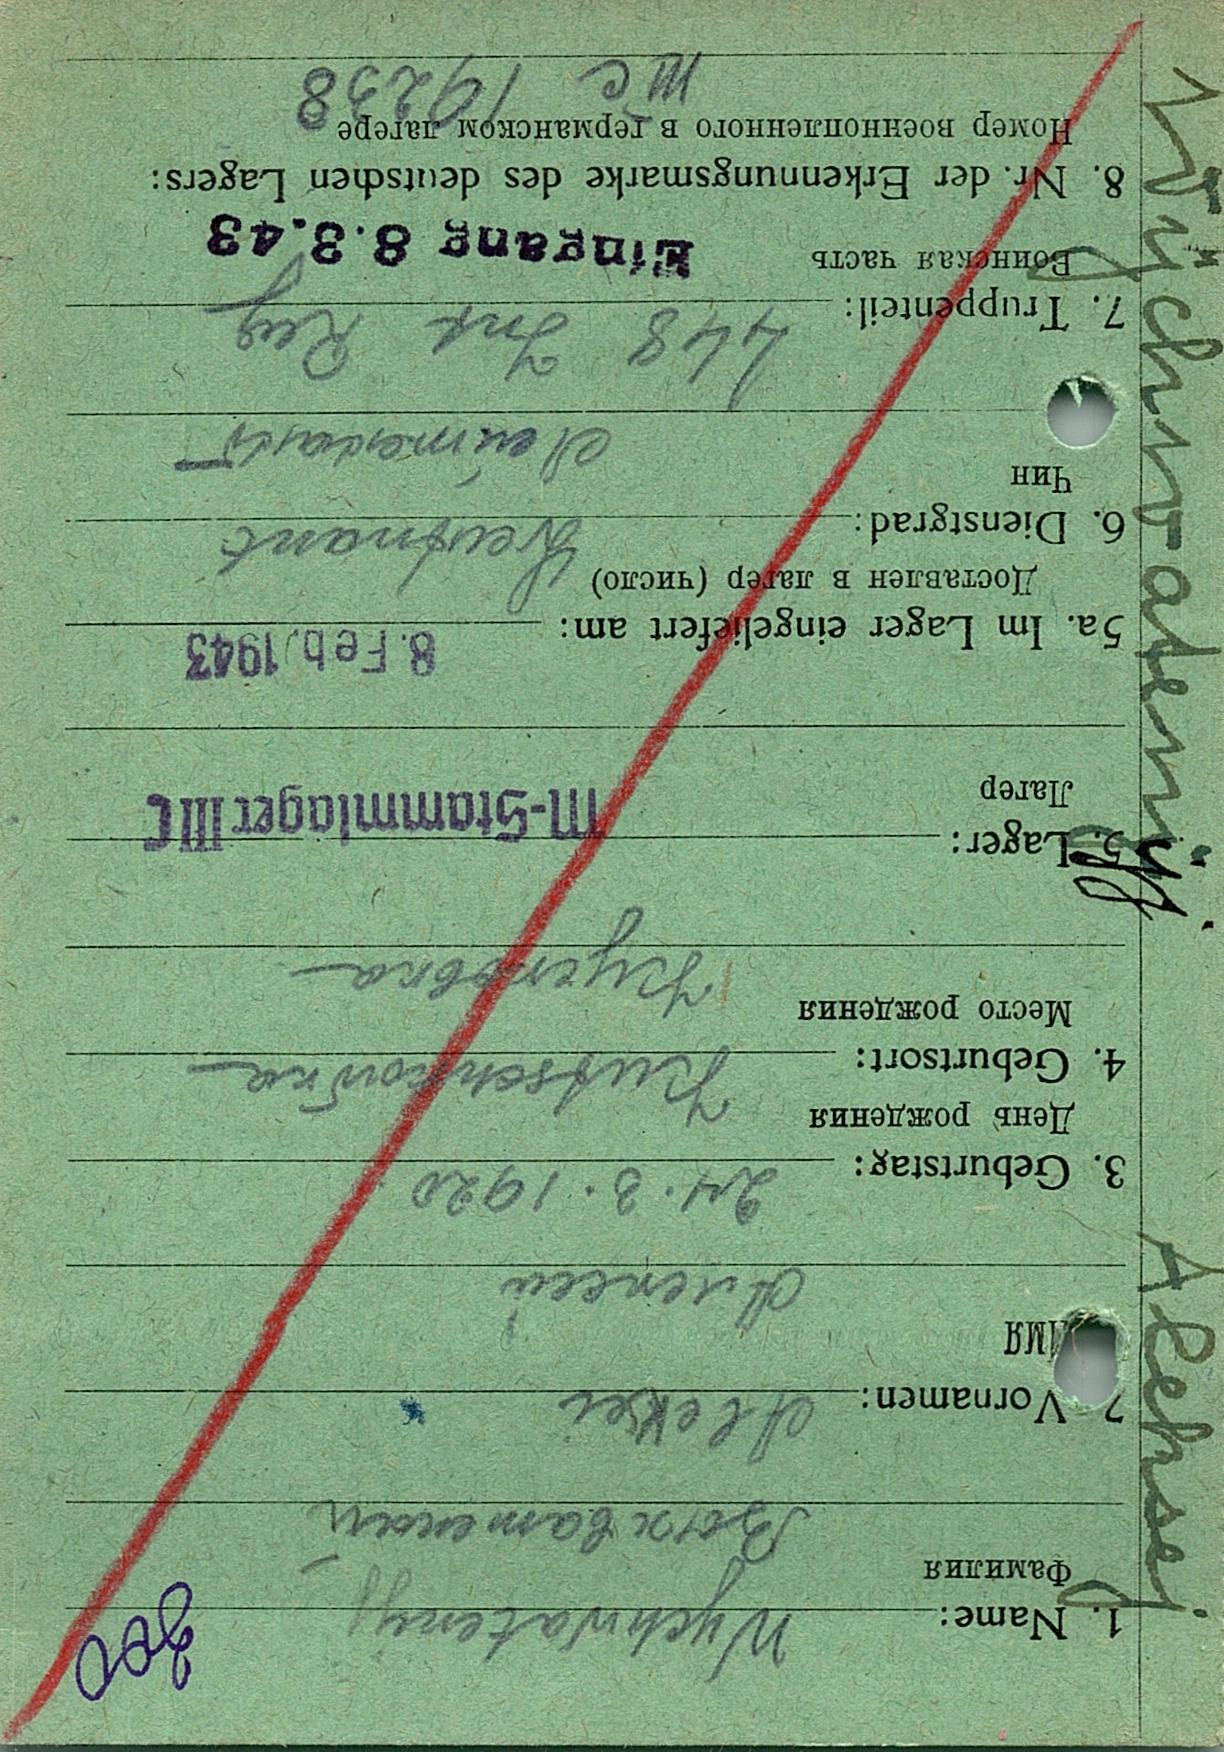 1. Name:
Wychwatenyj
Фамилия
Выхватений
2. Vornamen:
Aleksei
Имя
Алексей
3. Geburtstag:
24.3.1920
День рождения
4. Geburtsort:
Kutschkowka
Место рождения
5. Lager:
M-Stammlager III C
Лагер
5a. Im Lager eingeliefert am:
8. Feb. 1943
Доставлен в лагер (число)
6. Dienstgrad:
Leutnant
Чин
Лейтенант
7. Truppenteil:
448 Inf Reg
Воинская часть
Eingang 8.3.43
8. Nr. der Erkennungsmarke des deutschen Lagers:
Номер военнопленного в германском лагере
III C 19238
Aleksej